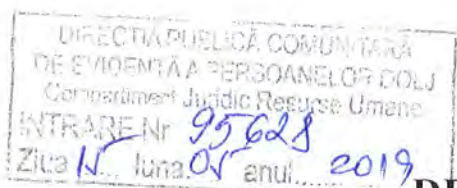 DIRECŢIA PUBLICĂ COMUNITARĂ
DE EVIDENŢĂ A PERSOANELOR DOLJ
Compartiment Juridic Resurse Umane
INTRARE Nr 95628
Ziua 15 luna 05 anul 2019